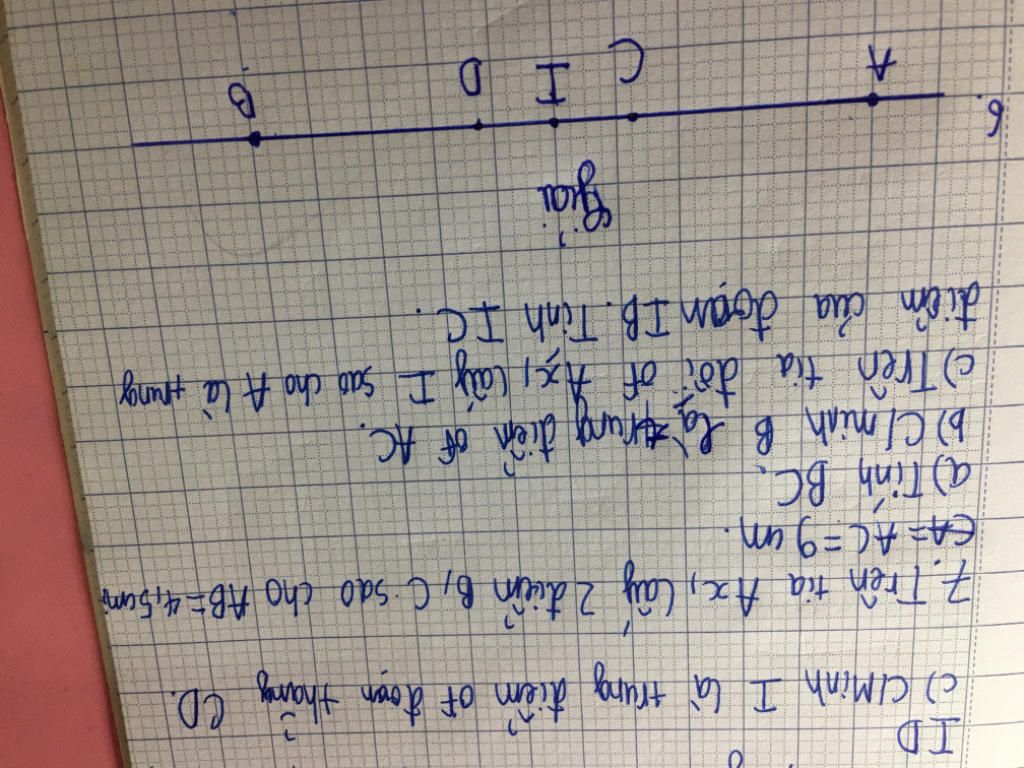 ID
c) C/Minh I là trung điểm of đoạn thẳng CD.
7. Trên tia Ax, lấy 2 điểm B, C sao cho AB = 4,5cm
AC = 9 cm.
a) Tính BC.
b) C/minh B là trung điểm of AC.
c) Trên tia đối of Ax, lấy I sao cho A là trung
điểm của đoạn IB. Tính IC.
Giải
6.
A C I D B